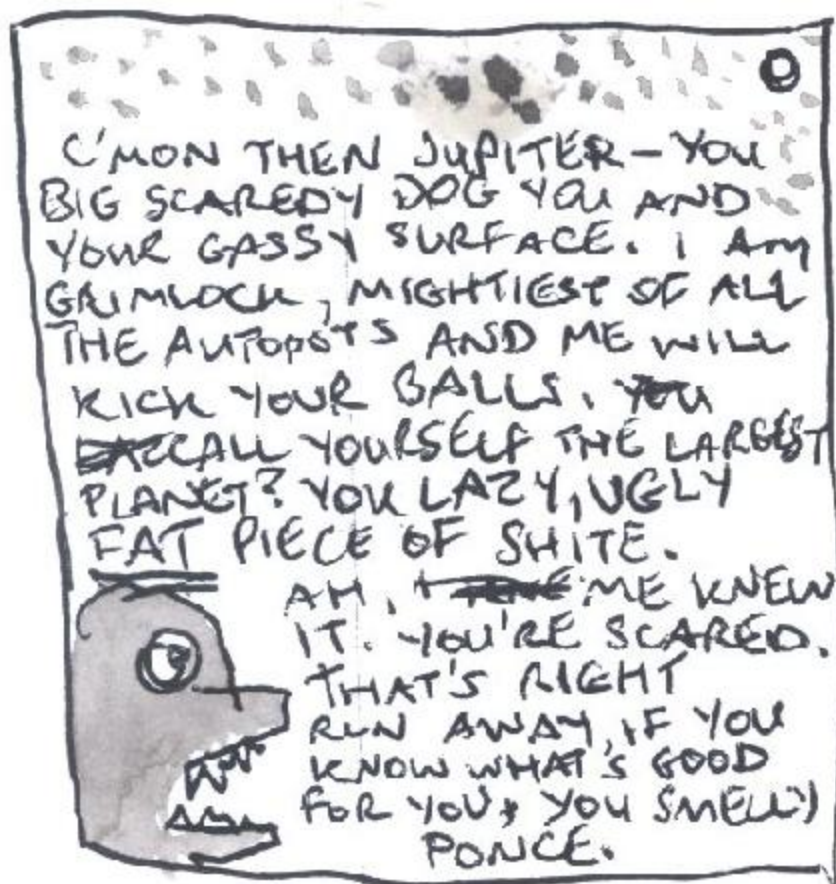 C'MON THEN JUPITER - YOU
BIG SCAREDY DOG YOU AND
YOUR GASSY SURFACE. I AM
GRIMLOCK, MIGHTIEST OF ALL
THE AUTOBOTS AND ME WILL
KICK YOUR BALLS. YOU
CALL YOURSELF THE LARGEST
PLANET? YOU LAZY, UGLY
FAT PIECE OF SHITE.
AH, ME KNEW
IT. YOU'RE SCARED.
THAT'S RIGHT
RUN AWAY, IF YOU
KNOW WHAT'S GOOD
FOR YOU, YOU SMELLY
PONCE.